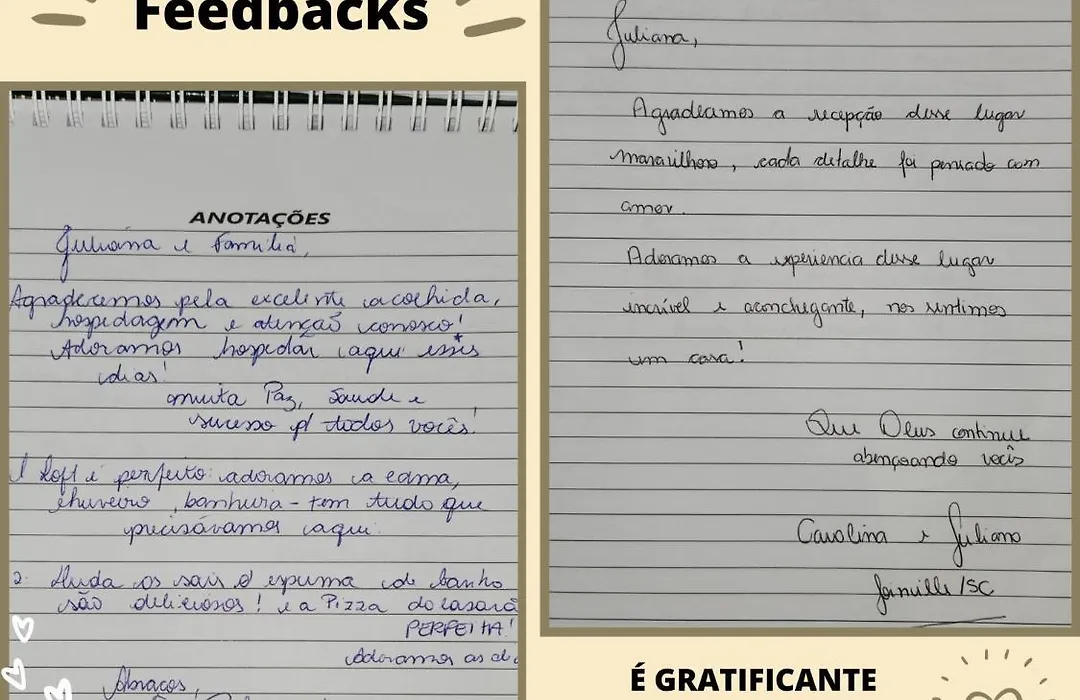 Feedbacks
ANOTAÇÕES
Juliana e Família,
Agradecemos pela excelente acolhida,
hospedagem e atenção conosco!
Adoramos hospedar aqui esses
dias!
muita Paz, Saúde e
sucesso p/ todos vocês!
1 Loft é perfeito: adoramos a cama,
chuveiro, banheira - tem tudo que
precisávamos aqui.
2. Ainda os sais e espuma de banho
são deliciosos! e a Pizza do casarã
PERFEITA!
Adoramos as
Abraços,
Juliana,
Agradeamos a recepção desse lugar
maravilhoso, cada detalhe foi pensado com
amor.
Adoramos a experiencia desse lugar
incrível e aconchegante, nos sentimos
em casa!
Que Deus continue
abençoando vocês
Carolina e Juliano
Joinville/SC
É GRATIFICANTE